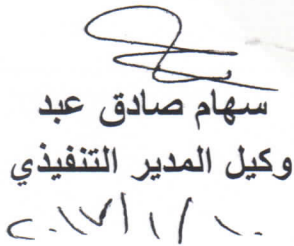 سهام صادق عبد
وكيل المدير التنفيذي
٢٠١٧/١/١٠